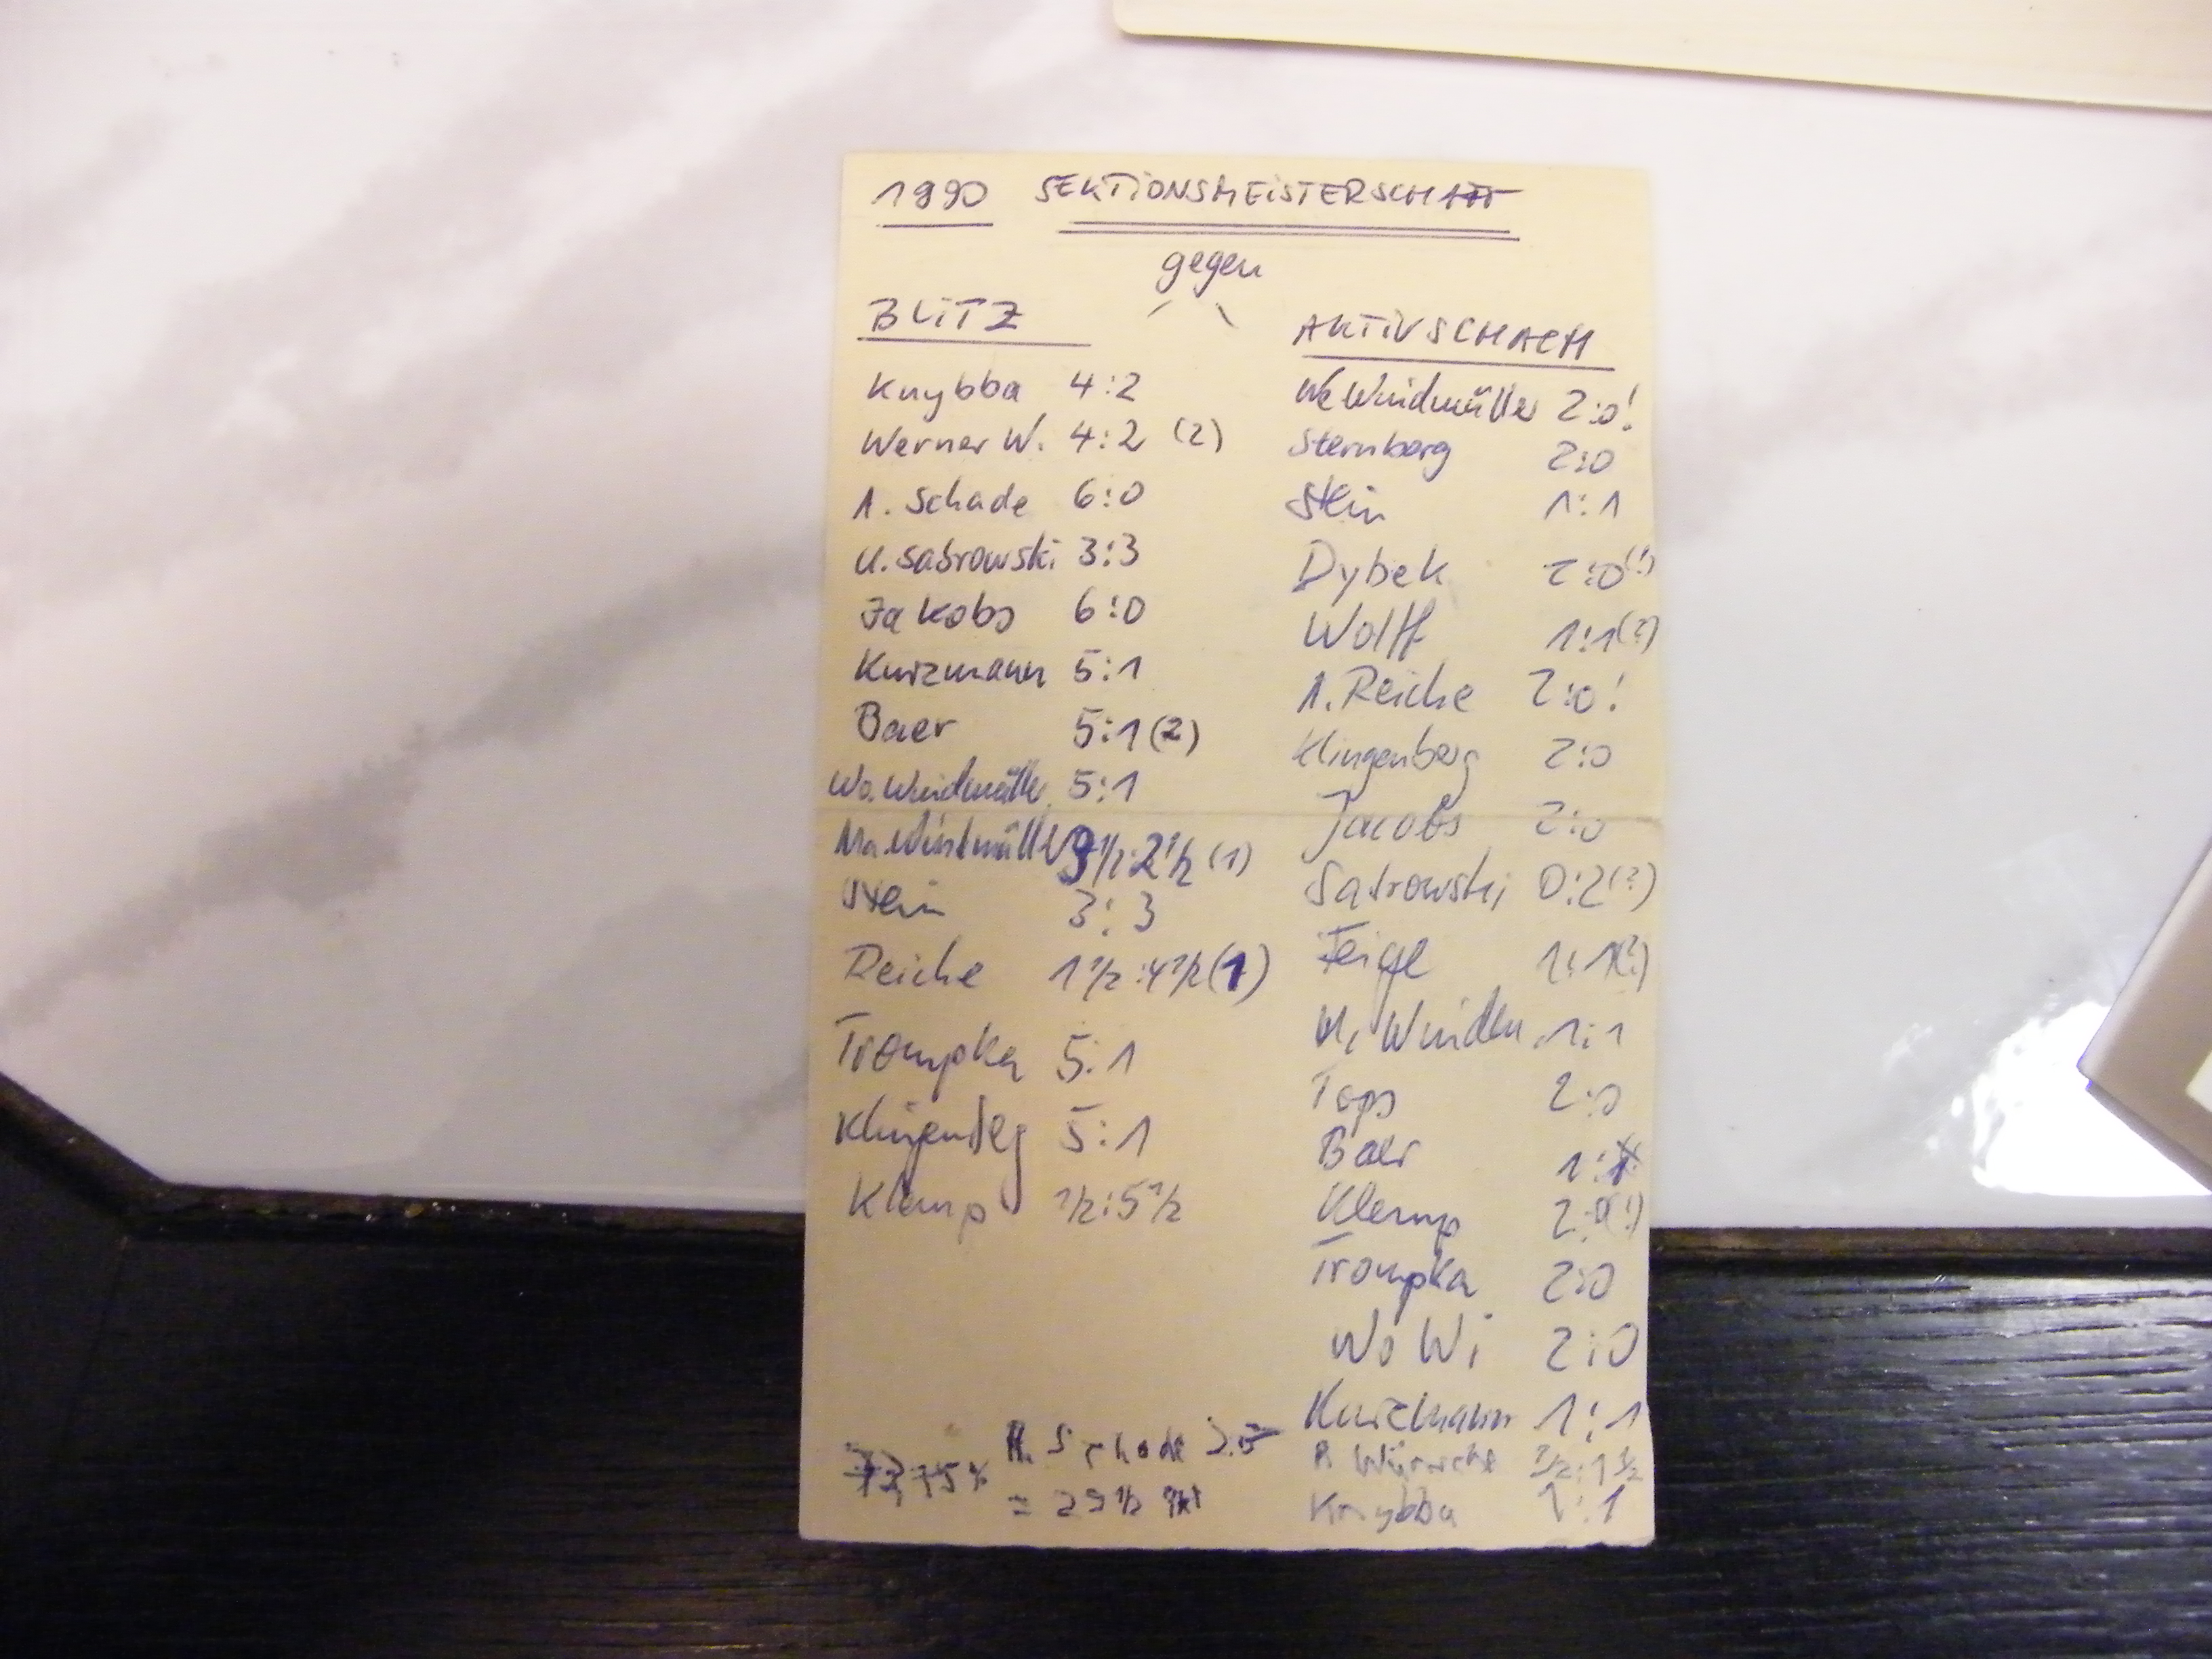 1990 SEKTIONSMEISTERSCHAFT
gegen
BLITZ
Knybba 4:2
Werner W. 4:2 (2)
1. Schade 6:0
U. Sabrowski 3:3
Jakobs 6:0
Kurzmann 5:1
Baer 5:1 (2)
Wo. Windmüller 5:1
Ma. Windmüller 3½:2½ (1)
Stein 3:3
Reiche 1½:4½ (1)
Trompka 5:1
Klingenbeg 5:1
Klemp ½:5½
Schade
= 29½
AKTIVSCHACH
We Windmüller 2:0!
Sternberg 2:0
Stein 1:1
Dybek 2:0(!)
Wolff 1:1(?)
1. Reiche 2:0!
Klingenberg 2:0
Jacobs 2:0
Sabrowski 0:2(?)
Feigl 1:1(?)
1:1
Tops 2:0
Baer 1:1
Klemp 2:0(!)
Trompka 2:0
Wo Wi 2:0
Kurzmann 1:1
½:1½
Knybba 1:1